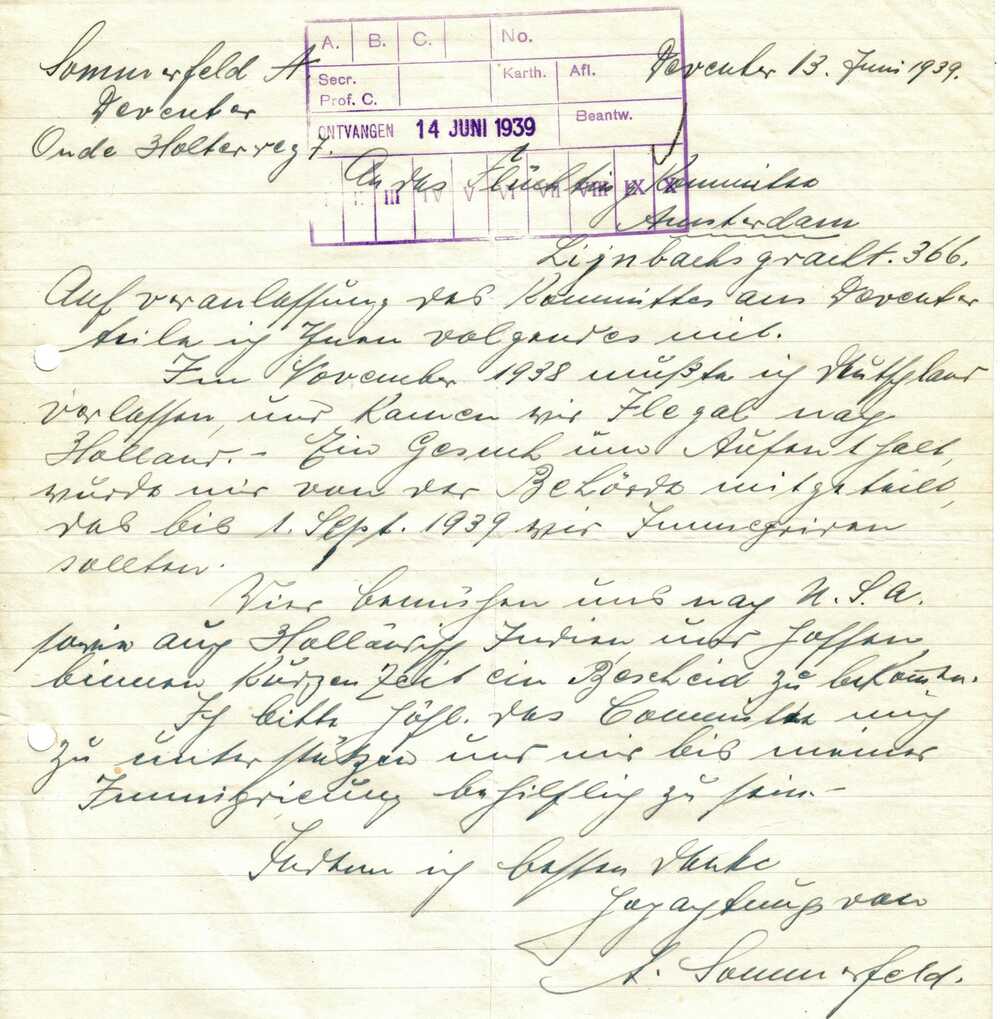 A. B. C. No.
Secr. Karth. Afl.
Prof. C.
ONTVANGEN 14 JUNI 1939 Beantw.
I II III IV V VI VII VIII IX X
Sommerfeld A.
Deventer
Oude Holterweg 7.
Deventer 13. Juni 1939.
An das Flüchtling Kommitee
Amsterdam
Lijnbachsgracht. 366.
Auf veranlassung des Kommittes aus Deventer
teile ich Ihnen volgendes mit.
Im November 1938 mußte ich Deutschland
verlassen, und kamen wir Ilegal nach
Holland. - Ein Gesuch um Aufenthalt,
wurde mir von der Behörde mitgeteilt,
das bis 1. Sept. 1939 wir Immegriren
sollten.
Wier bemühen uns nach U.S.A.
sowie auch Holländisch Indien und hoffen,
binnen kurzen Zeit ein Bescheid zu bekommen.
Ich bitte höfl. das Committee mich
zu unterstützen und mir bis meiner
Immigrierung behilflich zu sein. -
Indem ich besten Danke
hochachtungsvoll
A. Sommerfeld.